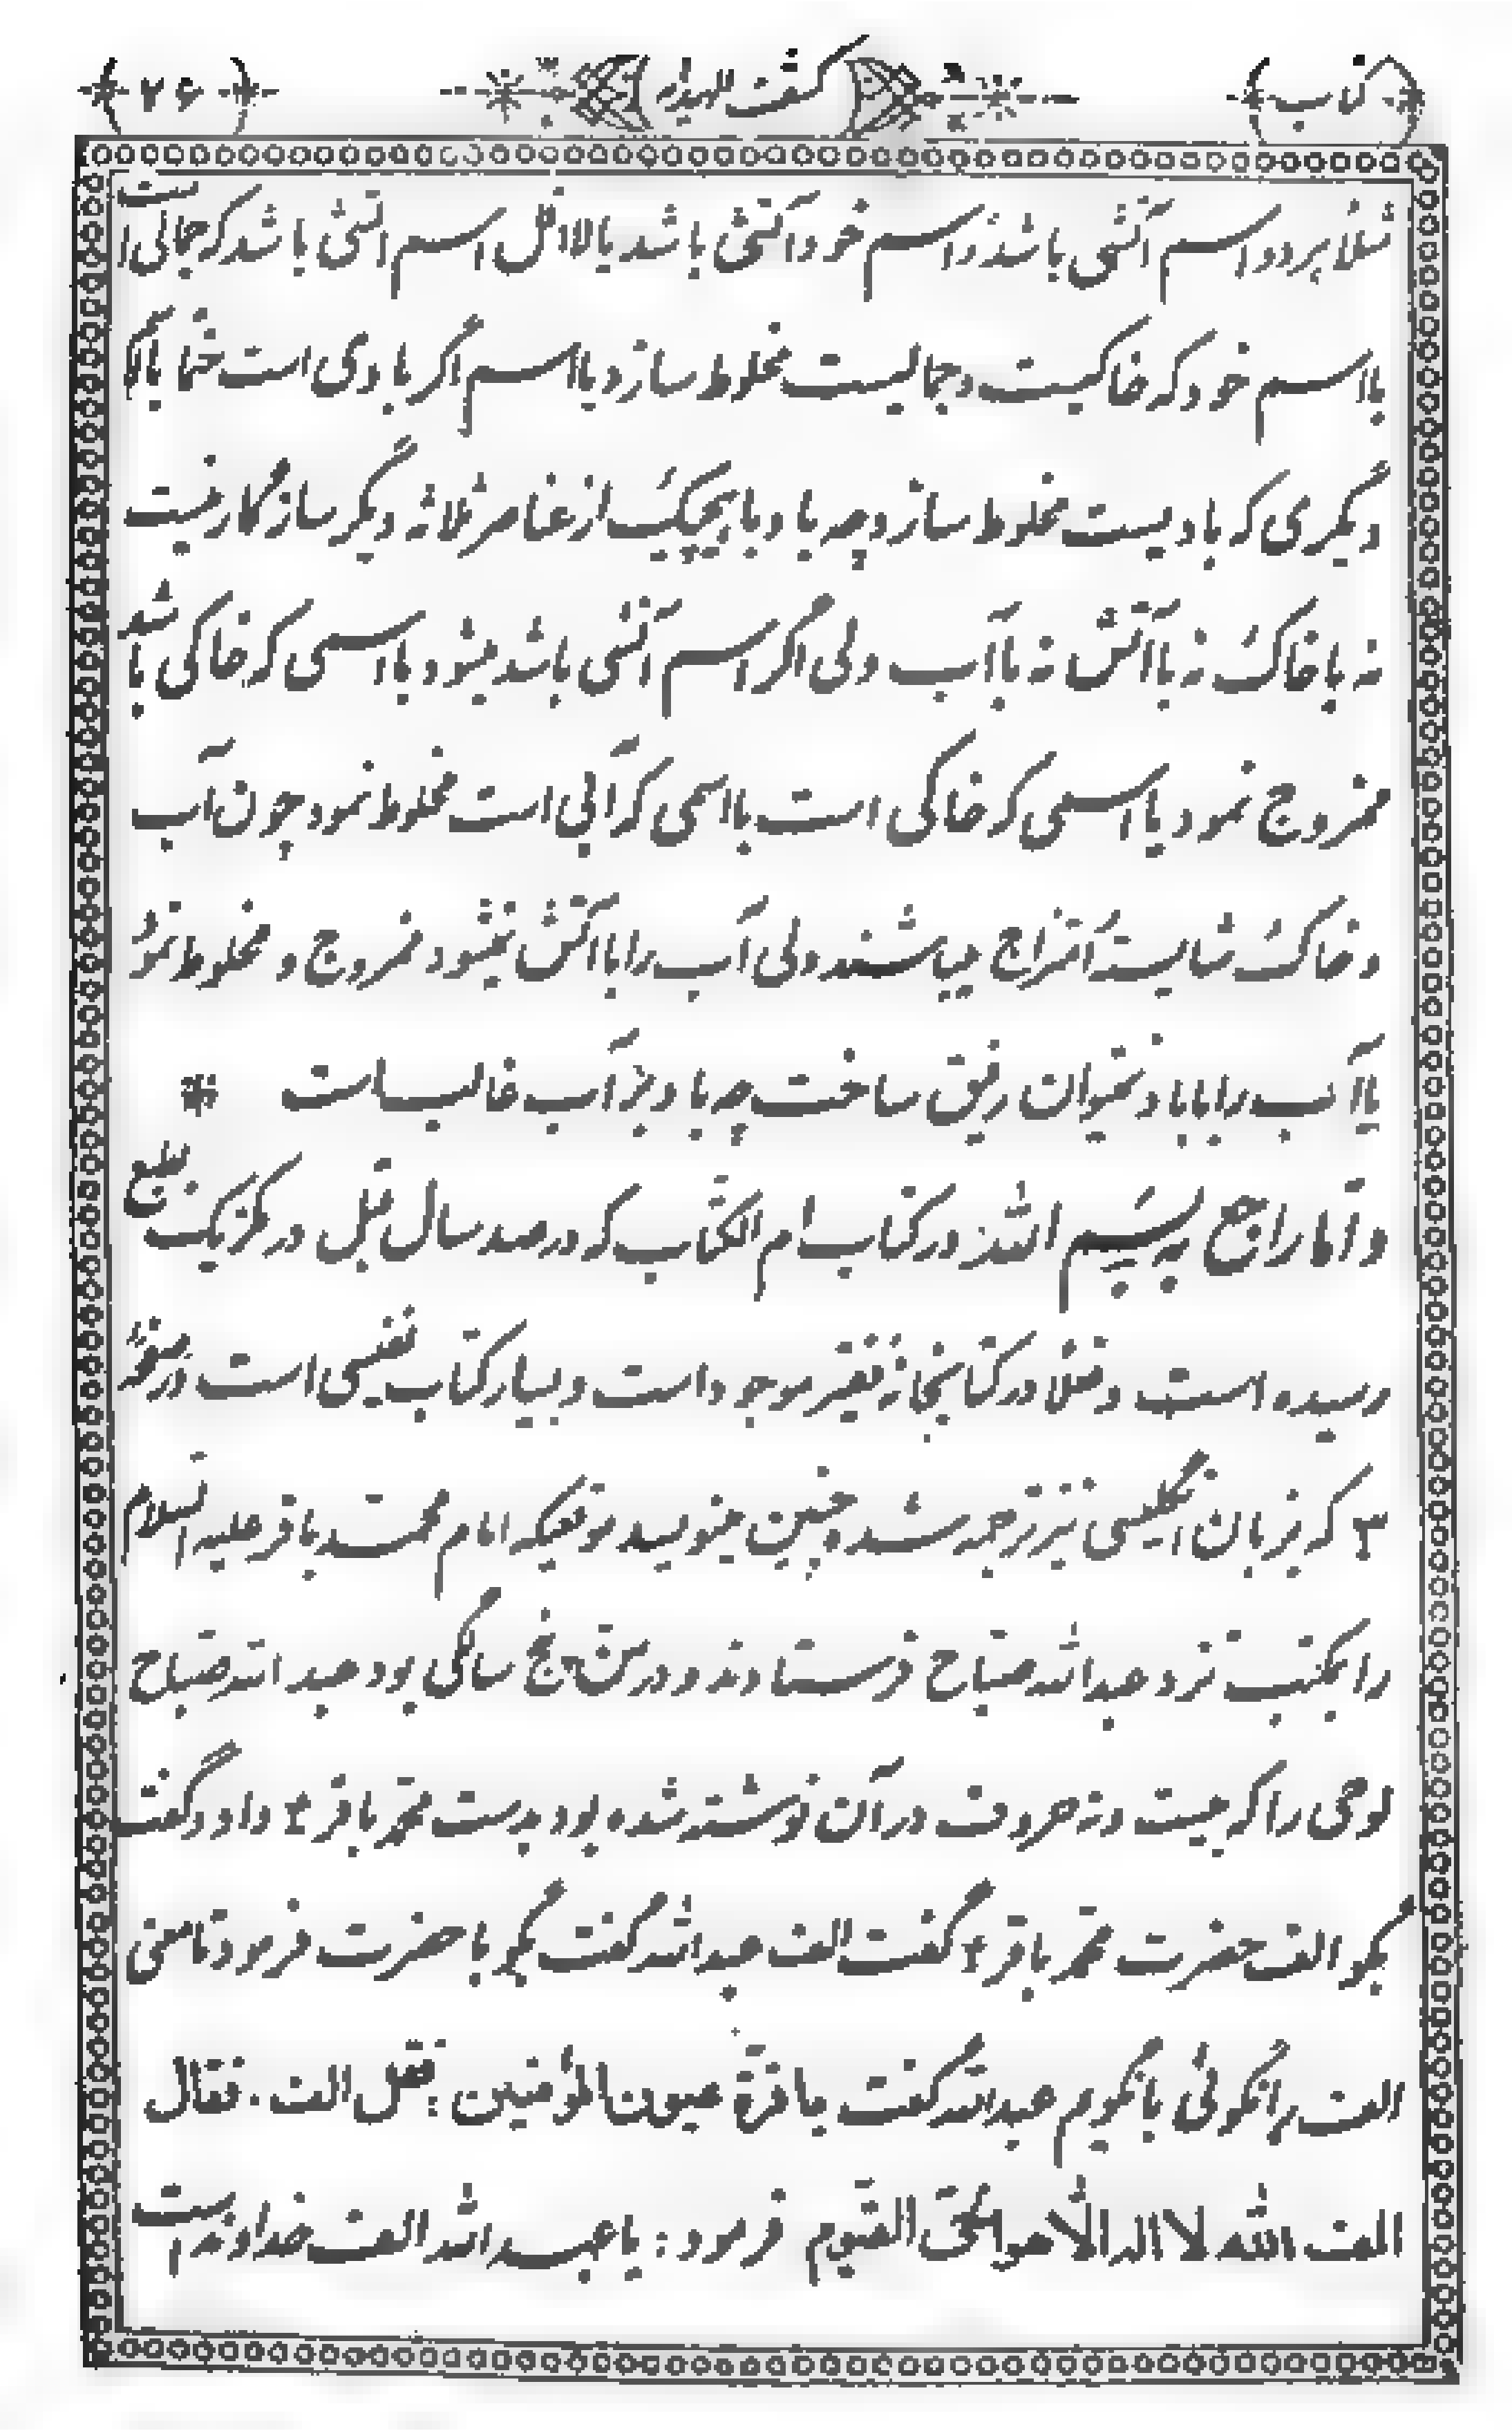 کتاب کشف الهدایه ۲۶
مثلاً هر دو اسم آتشی باشد و اسم خود آتشی باشد یا لااقل اسم آتشی باشد که جمالی است
با اسم خود که خاکیست و جمالیست مخلوط سازد یا اسم اگر بادی است حتما با
دیگری که بادیست مخلوط سازد چه باد با هیچیک از عناصر ثلاثه دیگر سازگار نیست
نه با خاک نه با آتش نه با آب ولی اگر اسم آتشی باشد میشود با اسمی که خاکی باشد
ممزوج نمود یا اسمی که خاکی است با اسمی که آبی است مخلوط نمود چون آب
و خاک شایسته امتزاج میباشند ولی آب را با آتش نمیشود ممزوج و مخلوط نمود
یا آب را با باد نمیتوان رفیق ساخت چه باد بر آب غالب است
و اما راجع به بسم الله در کتاب ام الکتاب که در صد سال قبل در مرکز بطبع
رسیده است و فعلا در کتابخانه فقیر موجود است و بسیار کتاب نفیسی است در صفحه
۳ که بزبان انگلیسی نیز ترجمه شده چنین مینویسد موقعیکه امام محمد باقر علیه السلام
را بمکتب نزد عبدالله صباح فرستادند و در سن پنج سالگی بود عبدالله صباح
لوحی را که بیست و نه حروف در آن نوشته شده بود بدست محمد باقر ع داد و گفت
بگو الف حضرت محمد باقر ع گفت الف عبدالله گفت بگو با حضرت فرمود تا معنی
الف را نگوئی با نگویم عبدالله گفت یا قرة عیون المؤمنین : فقل الف . فقال
الف الله لا اله الا هو الحی القیوم فرمود : یا عبدالله الف خداوند است